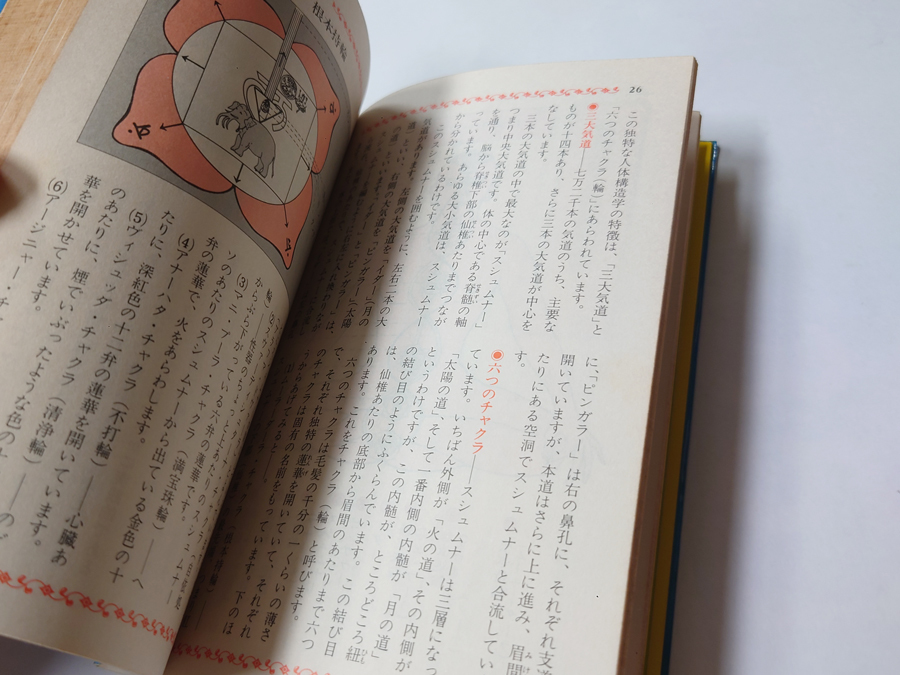 26
この独特な人体構造学の特徴は、「三大気道」と
「六つのチャクラ(輪)」にあらわれています。
◉三大気道――七万二千本の気道のうち、主要な
ものが十四本あり、さらに三本の大気道が中心を
なしています。
三本の大気道の中で最大なのが「スシュムナー」
つまり中央大気道です。体の中心である脊髄の軸
を通り、脳から脊椎下部の仙椎あたりまでつなが
っています。あらゆる大小気道は、スシュムナー
から分かれているわけです。
このスシュムナーを囲むように、左右二本の大
気道があります。左側の大気道を「イダー」(月の
道)といい、右側の大気道を「ピンガラー」(太陽
に、「ピンガラー」は右の鼻孔に、それぞれ支道
開いていますが、本道はさらに上に進み、眉間
たりにある空洞でスシュムナーと合流してい
す。
◉六つのチャクラ――スシュムナーは三層になっ
ています。いちばん外側が「火の道」、その内側が
「太陽の道」、そして一番内側の内髄が「月の道」
というわけですが、この内髄が、ところどころ紐
の結び目のようにふくらんでいます。この結び目
は、仙椎あたりの底部から眉間のあたりまで六つ
あります。これをチャクラ(輪)と呼びます。
六つのチャクラは毛髪の千分の一くらいの薄さ
で、それぞれ独特の蓮華を開いていて、それぞれ
のチャクラは固有の名前をもっています。下のほ
うからあげてみると
根本持輪
からぶら下がっている六弁の蓮華です。
(3)マニ・プーラ・チャクラ(満宝珠輪)――へ
ソのあたりのスシュムナーから出ている金色の十
弁の蓮華で、火をあらわします。
(4)アナーハタ・チャクラ(不打輪)――心臓あ
たりに、深紅色の十二弁の蓮華を開いています。
(5)ヴィシュッダ・チャクラ(清浄輪)――のど
のあたりに、煙でいぶったような色の
華を開かせています。
(6)アージニャー・チ